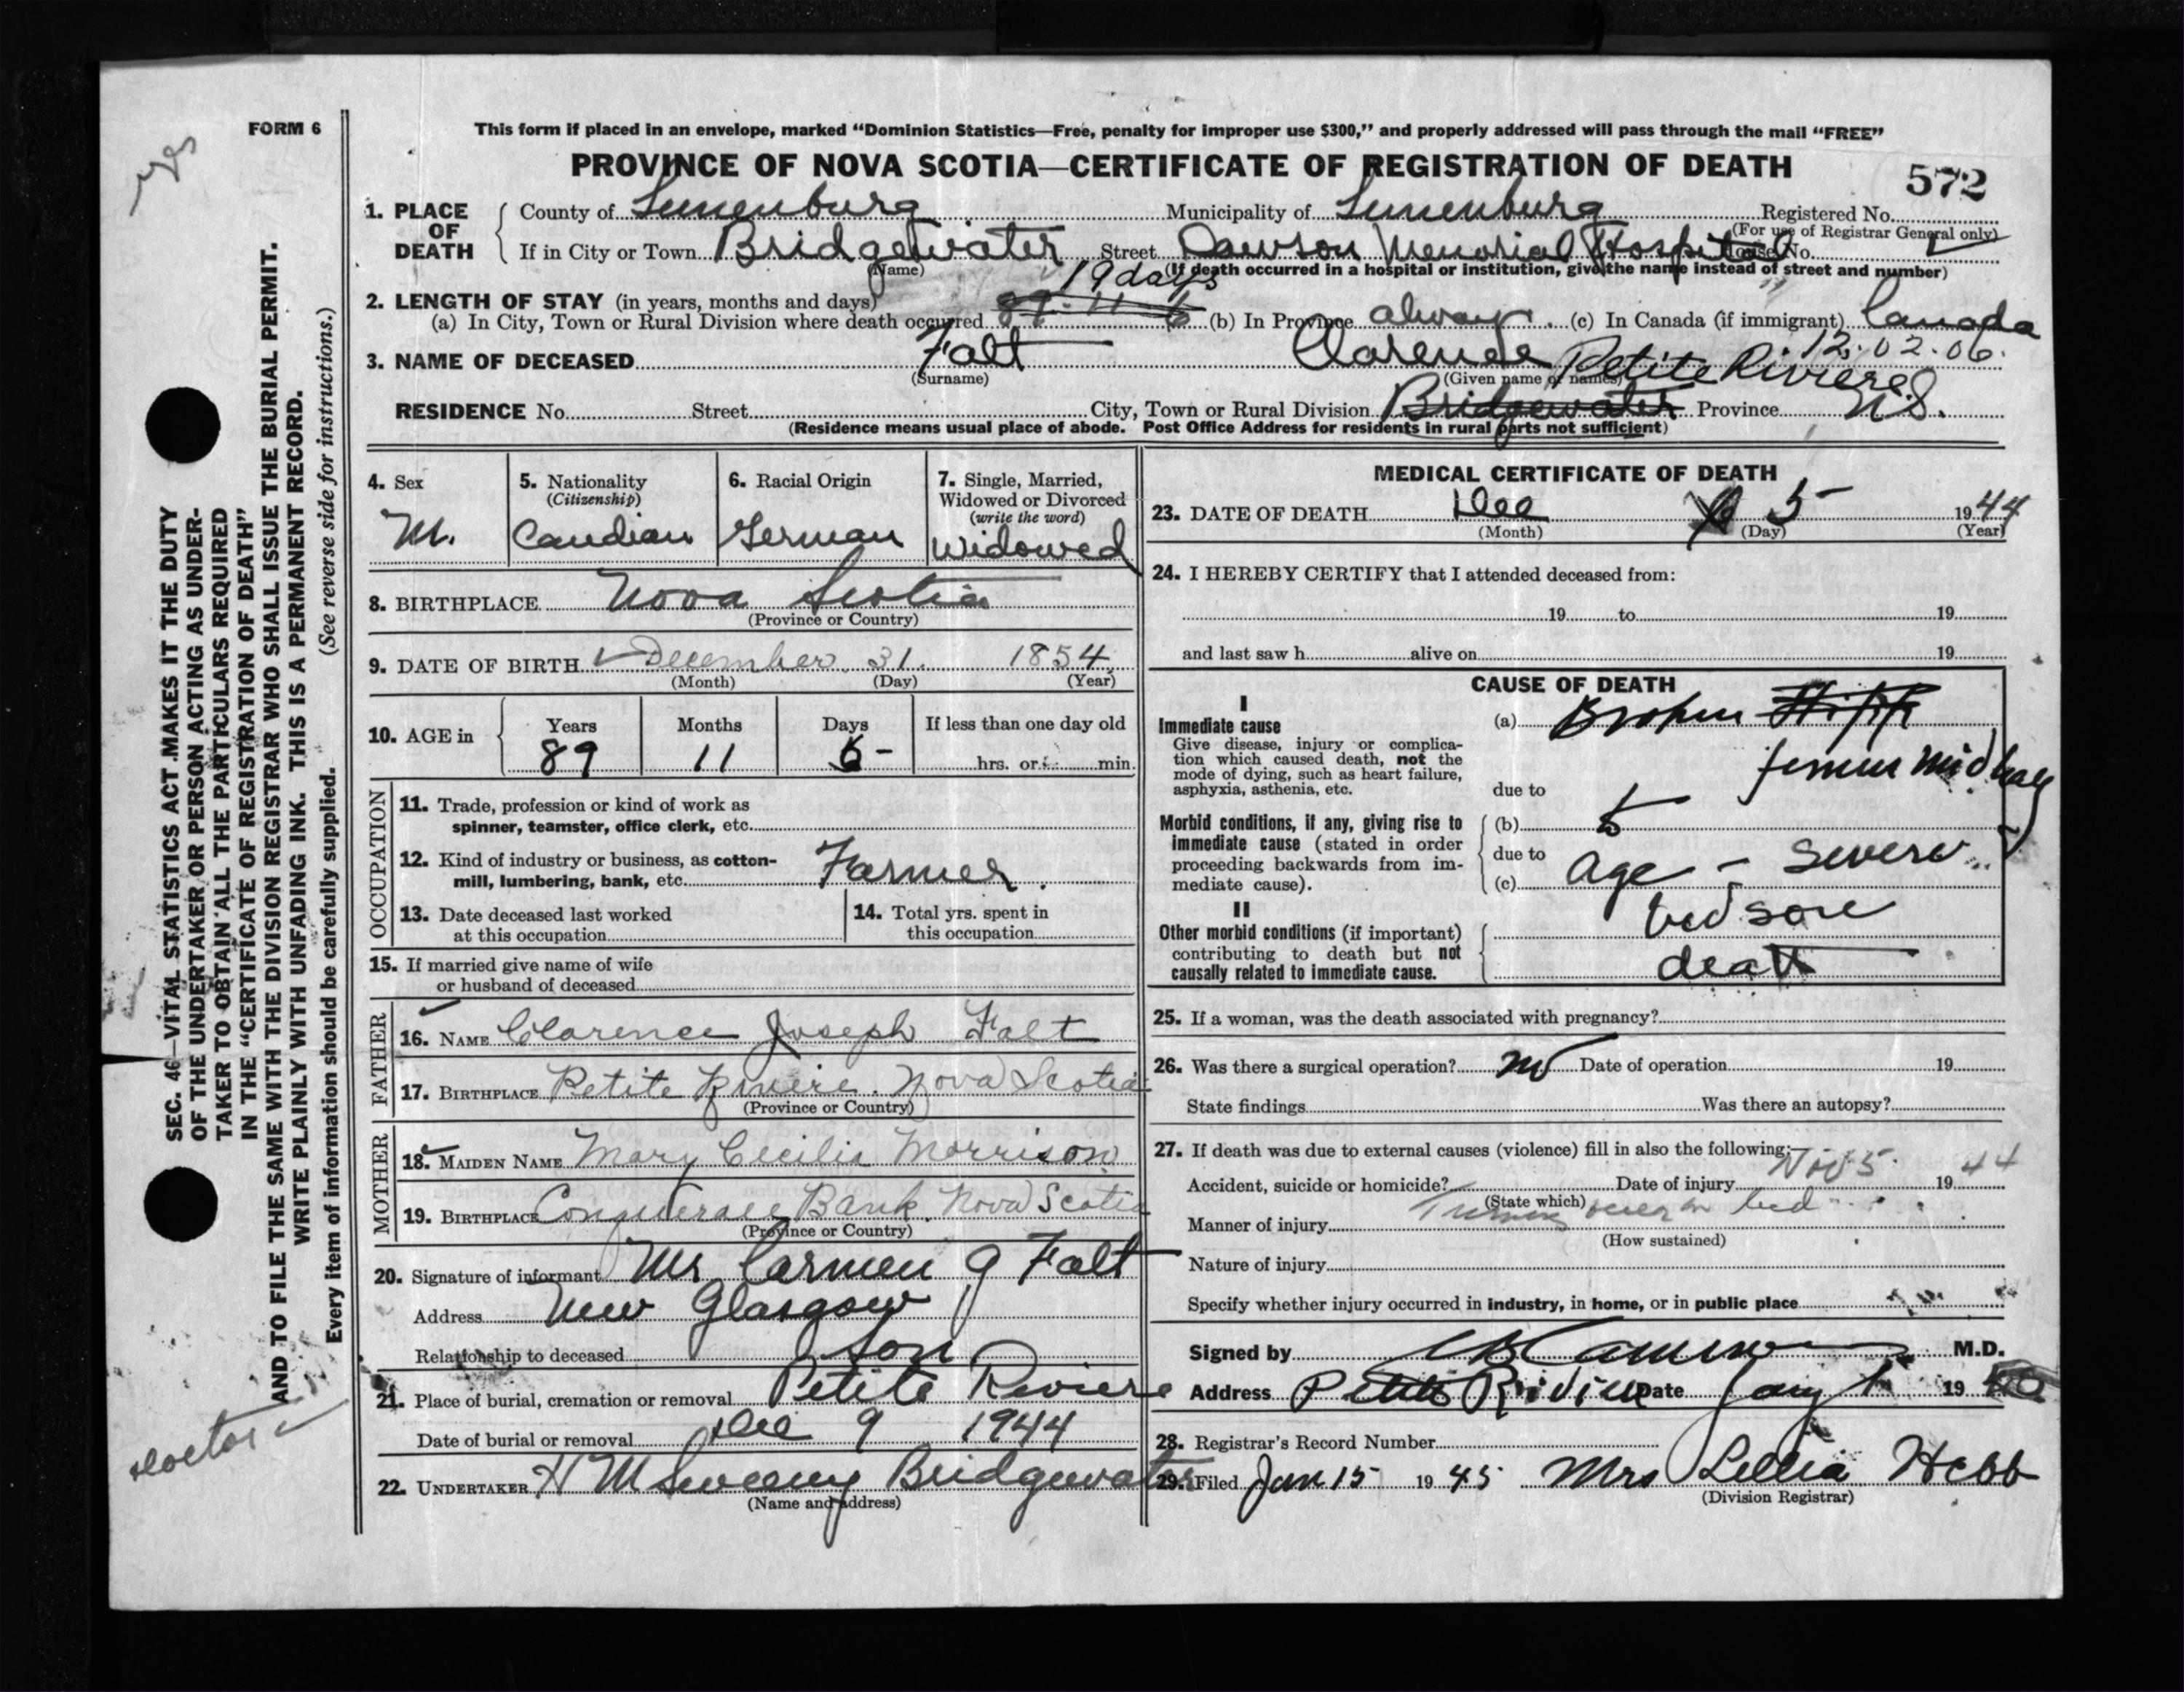 FORM 6
This form if placed in an envelope, marked “Dominion Statistics—Free, penalty for improper use $300,” and properly addressed will pass through the mail “FREE”
PROVINCE OF NOVA SCOTIA—CERTIFICATE OF REGISTRATION OF DEATH
572
1. PLACE OF DEATH
County of Lunenburg Municipality of Lunenburg Registered No.
(For use of Registrar General only)
If in City or Town Bridgewater Street Dawson Memorial Hospital House No.
(Name) (If death occurred in a hospital or institution, give the name instead of street and number)
2. LENGTH OF STAY (in years, months and days) 19 days
(a) In City, Town or Rural Division where death occurred 89-11-6 (b) In Province always (c) In Canada (if immigrant) Canada
12.02.06.
3. NAME OF DECEASED Falt Clarence
(Surname) (Given name or names) Petite Riviere
RESIDENCE No. Street City, Town or Rural Division Bridgewater Province N.S.
(Residence means usual place of abode. Post Office Address for residents in rural parts not sufficient)
4. Sex
M.
5. Nationality
(Citizenship)
Candian
6. Racial Origin
German
7. Single, Married,
Widowed or Divorced
(write the word)
Widowed
8. BIRTHPLACE Nova Scotia
(Province or Country)
9. DATE OF BIRTH December 31. 1854
(Month) (Day) (Year)
10. AGE in
Years Months Days If less than one day old
89 11 5 hrs. or min.
OCCUPATION
11. Trade, profession or kind of work as
spinner, teamster, office clerk, etc.
12. Kind of industry or business, as cotton-
mill, lumbering, bank, etc. Farmer.
13. Date deceased last worked
at this occupation
14. Total yrs. spent in
this occupation
15. If married give name of wife
or husband of deceased
FATHER
16. NAME Clarence Joseph Falt
17. BIRTHPLACE Petite Riviere. Nova Scotia
(Province or Country)
MOTHER
18. MAIDEN NAME Mary Cecilia Morrison
19. BIRTHPLACE Conquerall Bank. Nova Scotia
(Province or Country)
20. Signature of informant Mr Carmen G Falt
Address New Glasgow
Relationship to deceased Son
21. Place of burial, cremation or removal Petite Riviere
Date of burial or removal Dec 9 1944
22. UNDERTAKER H M Sweeny Bridgewater
(Name and address)
MEDICAL CERTIFICATE OF DEATH
23. DATE OF DEATH Dec 5 1944
(Month) (Day) (Year)
24. I HEREBY CERTIFY that I attended deceased from:
19 to 19
and last saw h alive on 19
CAUSE OF DEATH
I
Immediate cause
Give disease, injury or complica-
tion which caused death, not the
mode of dying, such as heart failure,
asphyxia, asthenia, etc.
(a) Broken Hipp
femur midway
due to
Morbid conditions, if any, giving rise to
immediate cause (stated in order
proceeding backwards from im-
mediate cause).
(b)
due to
(c) age - severe
II
Other morbid conditions (if important)
contributing to death but not
causally related to immediate cause.
bed sore
death
25. If a woman, was the death associated with pregnancy?
26. Was there a surgical operation? no Date of operation 19
State findings Was there an autopsy?
27. If death was due to external causes (violence) fill in also the following:
Accident, suicide or homicide? Date of injury Nov 5 1944
(State which)
Manner of injury Turning over in bed
(How sustained)
Nature of injury
Specify whether injury occurred in industry, in home, or in public place
Signed by M.D.
Address Petite Riviere Date Jany 1 19
28. Registrar's Record Number
29. Filed Jan 15 1945 Mrs Lellia Hebb
(Division Registrar)
SEC. 46—VITAL STATISTICS ACT MAKES IT THE DUTY
OF THE UNDERTAKER OR PERSON ACTING AS UNDER-
TAKER TO OBTAIN ALL THE PARTICULARS REQUIRED
IN THE “CERTIFICATE OF REGISTRATION OF DEATH”
AND TO FILE THE SAME WITH THE DIVISION REGISTRAR WHO SHALL ISSUE THE BURIAL PERMIT.
WRITE PLAINLY WITH UNFADING INK. THIS IS A PERMANENT RECORD.
Every item of information should be carefully supplied. (See reverse side for instructions.)
yes
doctor